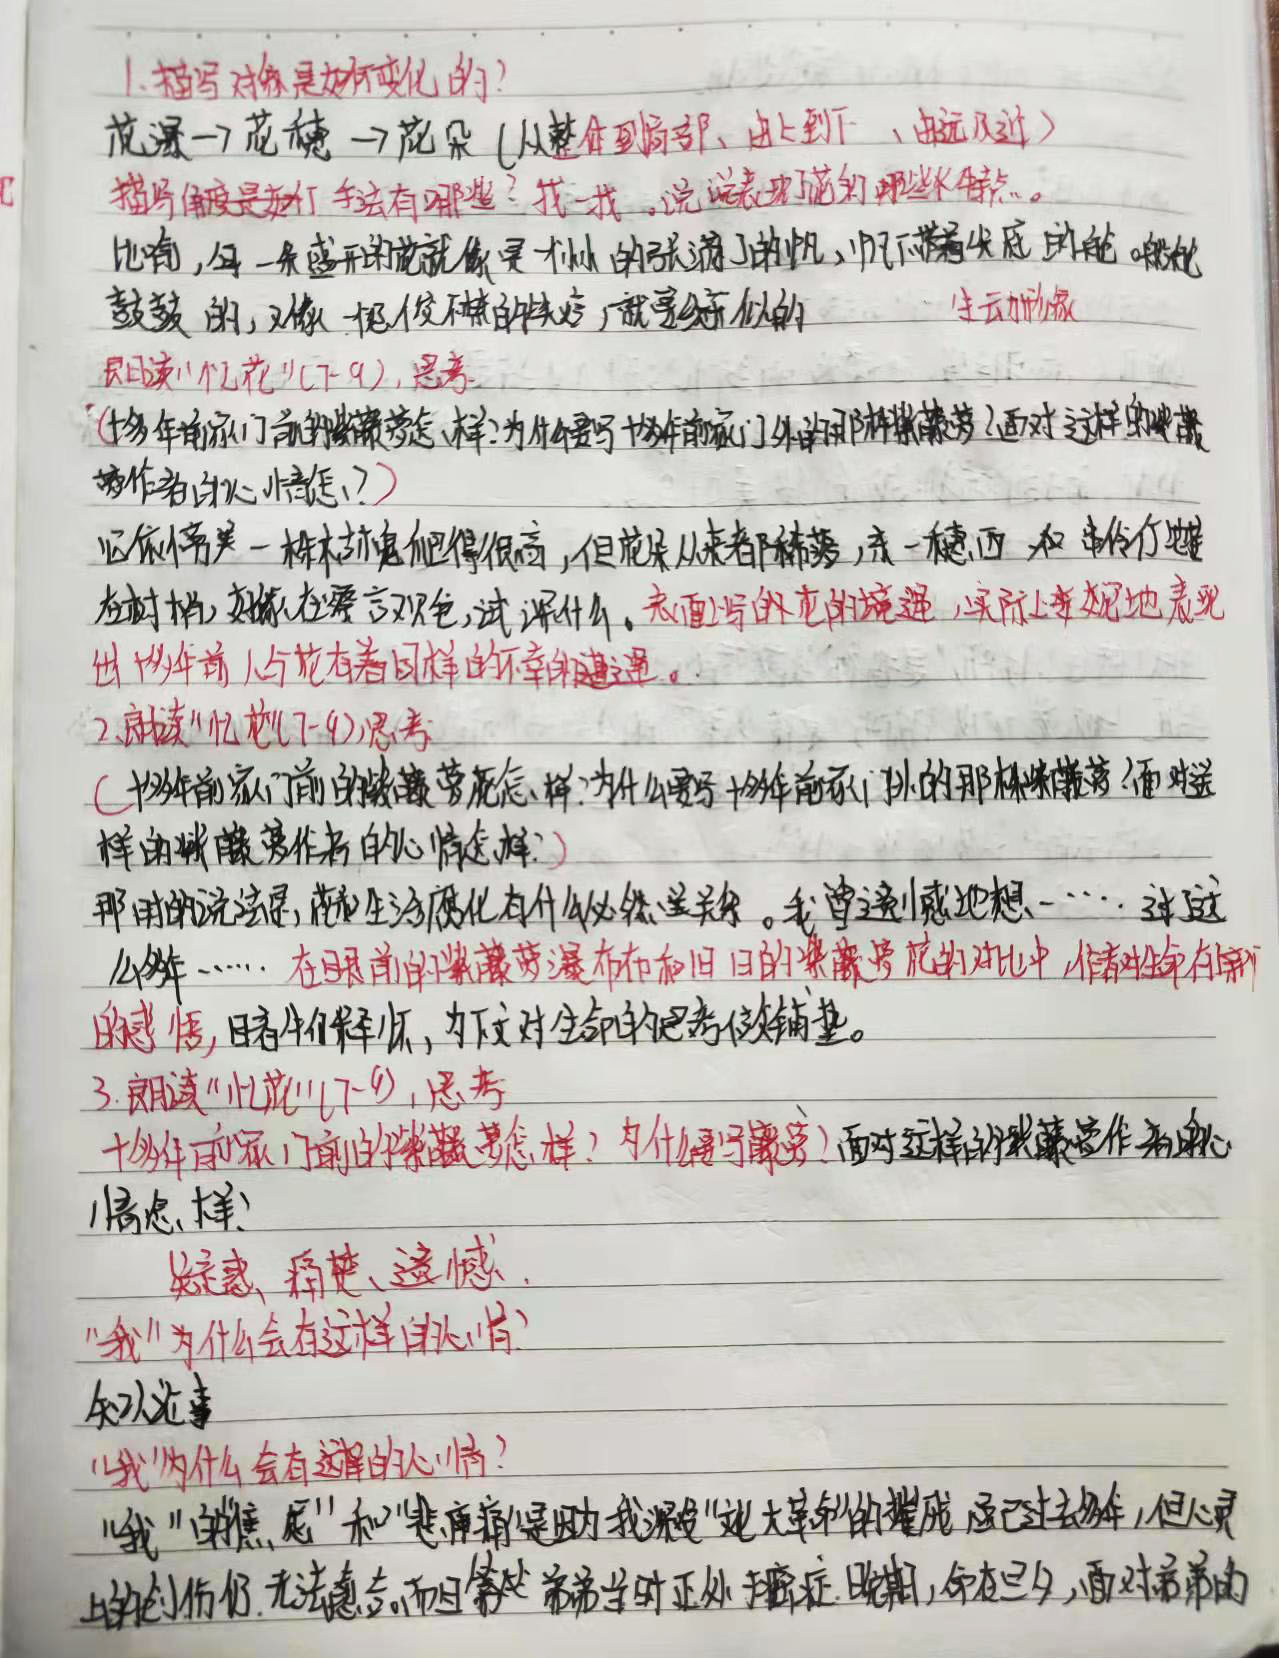 1.描写对象是如何变化的?
花瀑→花穗→花朵(从整体到局部、由上到下、由远及近)
描写角度是如何 手法有哪些?找一找。说说表现了花的哪些特点..。
比喻,每一朵盛开的花就像是一个小小的张满了的帆,帆下带着尖底的舱 船舱
鼓鼓的,又像一 忍俊不禁的笑容,就要绽开似的 生动形象
朗读"忆花"(7-9),思考.
(十多年前家门前的紫藤萝怎样?为什么要写十多年前家门外的那株紫藤萝?面对这样的紫藤
萝作者的心情怎?)
依傍 一株枯槐爬得很高,但花朵从来都稀落,东一穗西 伶仃地挂
在树梢,好像在察言观色,试探什么。表面上写的是花的境遇,实际上委婉地表现
出十多年前人与花有着同样的不幸的遭遇。
2.朗读"忆花"(7-9)思考.
(十多年前家门前的紫藤萝花怎样?为什么要写十多年前家门外的那株紫藤萝?面对这
样的紫藤萝作者的心情怎样?)
那时的说法是,花和生活腐化有什么必然关系。我曾遗憾地想……过了这
么多年……在眼前的紫藤萝瀑布布和旧日的紫藤萝花的对比中,作者对生命有
的感悟,释怀,为下文对生命的思考做铺垫。
3.朗读"忆花"(7-9),思考
十多年前家门前的紫藤萝怎样?为什么要写藤萝?面对这样的紫藤萝作者的心
情怎样?
疑惑、痛楚、遗憾.
"我"为什么会有这样的心情?
知人论事
"我"为什么会有这样的心情?
"我"的"焦虑"和"悲痛"是因为我深受"文化大革命"的摧残 虽已过去多年,但心灵
上的创伤仍无法愈合。而且 弟弟当时正处于癌症晚期,命在旦夕,面对弟弟的